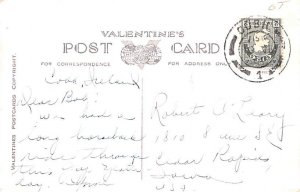 VALENTINE'S
POST CARD
FOR CORRESPONDENCE
FOR ADDRESS ONLY
VALENTINES POSTCARDS COPYRIGHT.
Cobh, Ireland
Dear Bob:
We had a
long horseback
ride through
this
day,
Robert O'Leary
1810 8 ave SE
Cedar Rapids,
Iowa
USA.